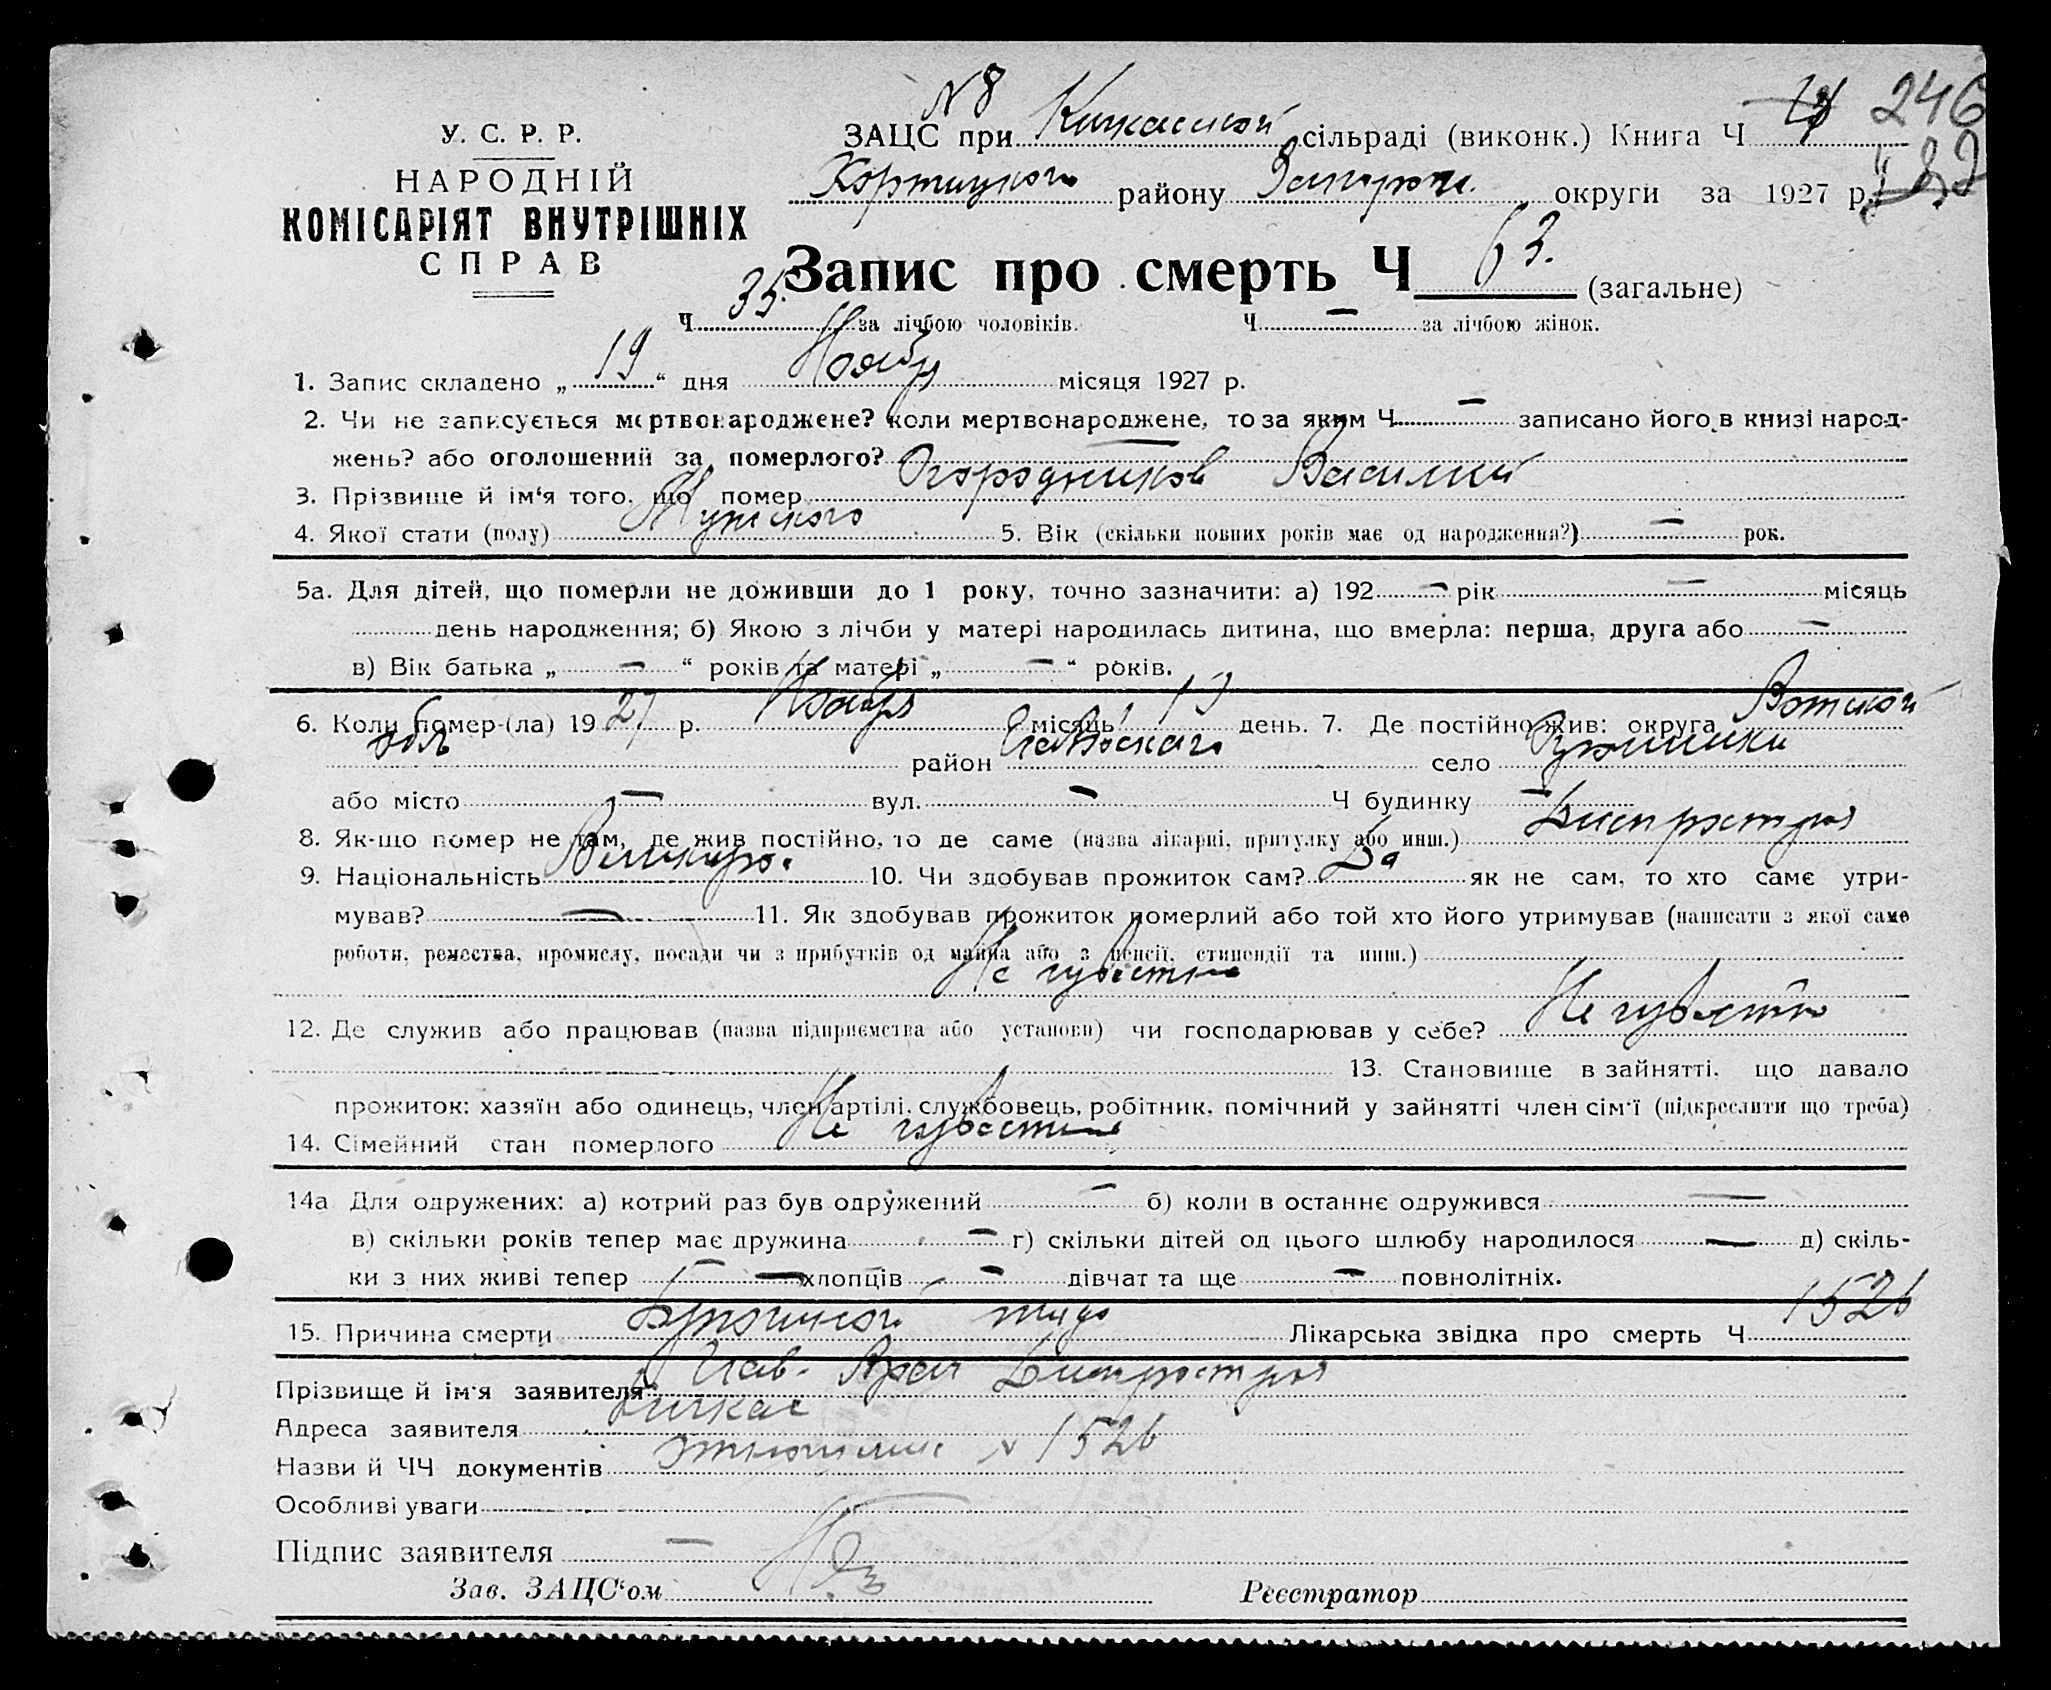 N 8
У. С. Р. Р.
НАРОДНІЙ
КОМІСАРІЯТ ВНУТРІШНІХ
СПРАВ
ЗАЦС при Кичкасской сільраді (виконк.) Книга Ч 246
Хортицкого району Запорож. округи за 1927 р.
Запис про смерть Ч 63. (загальне)
Ч 35. за лічбою чоловіків. Ч — за лічбою жінок.
1. Запис складено „ 19 “ дня Ноября місяця 1927 р.
2. Чи не записується мертвонароджене? коли мертвонароджене, то за яким Ч — записано його в книзі народ-
жень? або оголошений за померлого? —
3. Прізвище й ім‘я того, що помер Огородников Василий
4. Якої стати (полу) Мужского 5. Вік (скільки повних років має од народження?) — рок.
5а. Для дітей, що померли не доживши до 1 року, точно зазначити: а) 192 — рік — місяць
день народження; б) Якою з лічби у матері народилась дитина, що вмерла: перша, друга або —
в) Вік батька „ — “ років та матері „ — “ років.
6. Коли помер-(ла) 19 27 р. Ноября місяць 17 день. 7. Де постійно жив: округа Вотской
обл район село
або місто — вул. — Ч будинку —
8. Як-що помер не там, де жив постійно, то де саме (назва лікарні, притулку або инш.) Днепрострой
9. Національність Великорос. 10. Чи здобував прожиток сам? Да як не сам, то хто саме утри-
мував? — 11. Як здобував прожиток померлий або той хто його утримував (написати з якої саме
роботи, ремества, промислу, посади чи з прибутків од майна або з пенсії, стипендії та инш.)
Не
12. Де служив або працював (назва підприємства або установи) чи господарював у себе? Не
13. Становище в зайнятті, що давало
прожиток: хазяїн або одинець, член артілі, службовець, робітник, помічний у зайнятті член сім‘ї (підкреслити що треба)
14. Сімейний стан померлого Не
14а Для одружених: а) котрий раз був одружений — б) коли в останнє одружився —
в) скільки років тепер має дружина — г) скільки дітей од цього шлюбу народилося — д) скіль-
ки з них живі тепер — хлопців — дівчат та ще — повнолітніх.
15. Причина смерти Брюшной тиф Лікарська звідка про смерть Ч 1526
Прізвище й ім‘я заявителя Глав. Врач Днепростроя
Адреса заявителя Кичкас
Назви й ЧЧ документів 1526
Особливі уваги
Підпис заявителя —
Зав. ЗАЦС‘ом Реєстратор